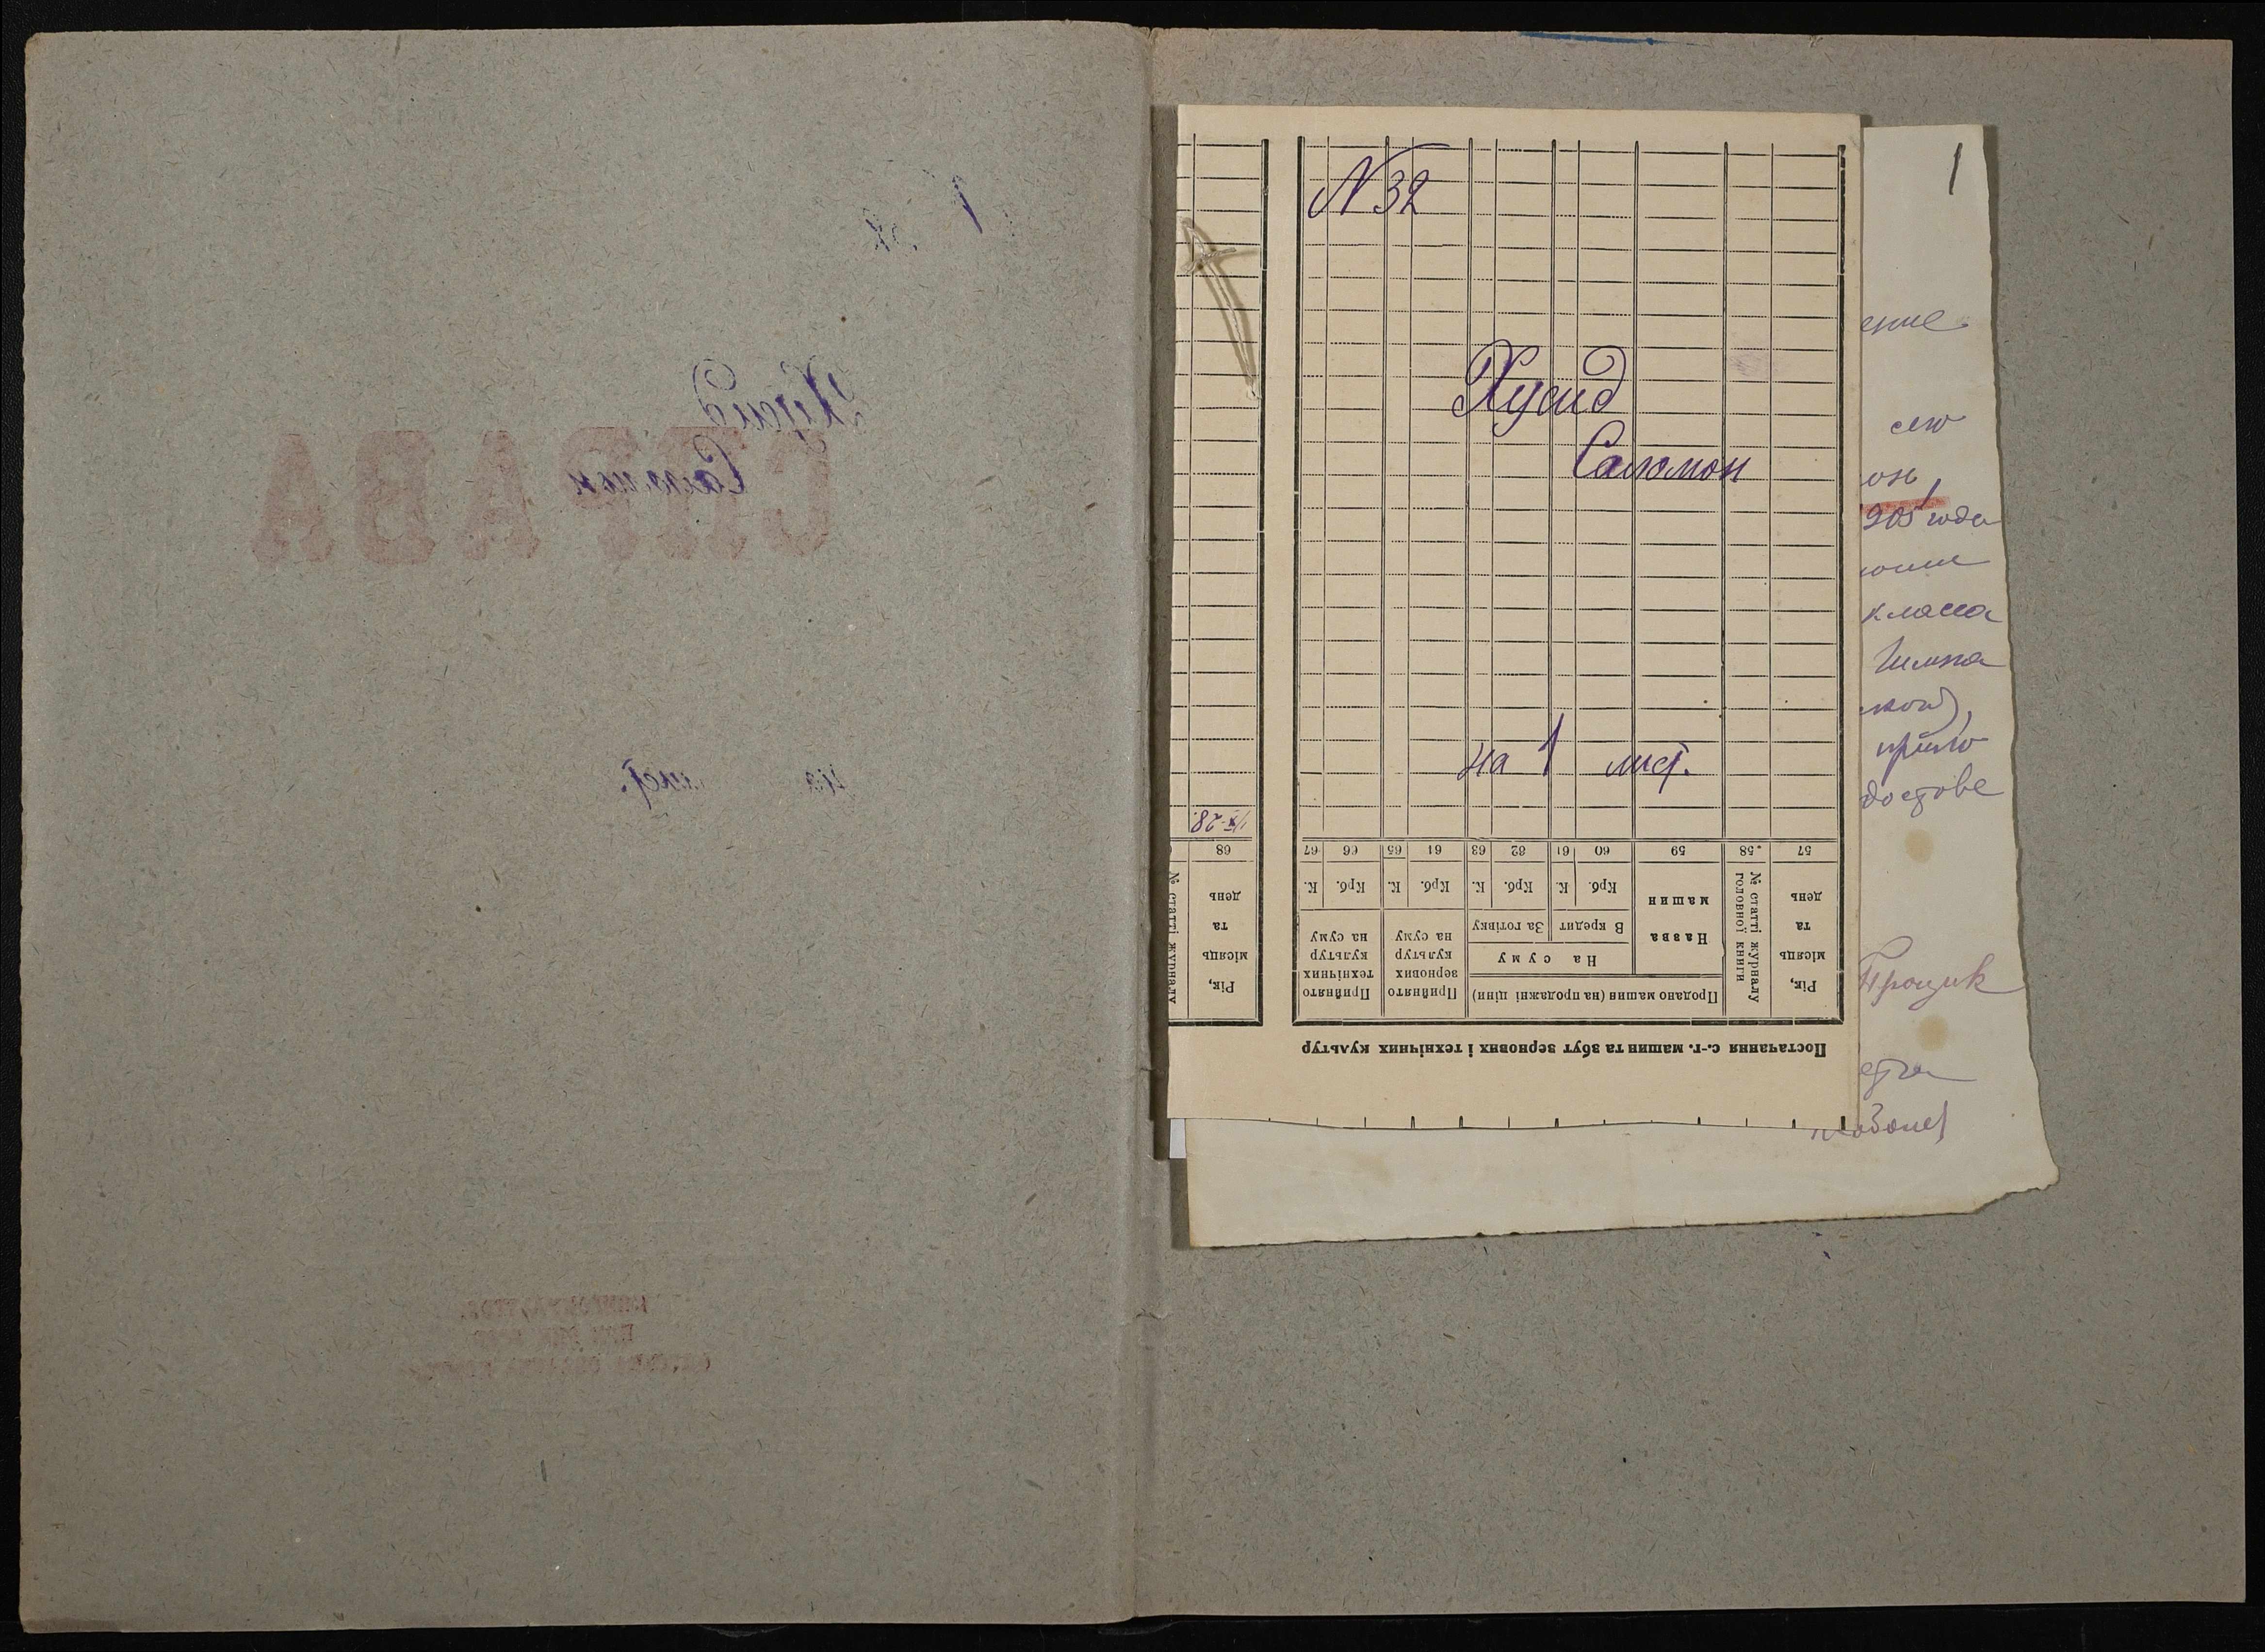 1
Хусид
СПРАВА
Саломон
на лист.
N 32
Хусид
Саломон
на 1 лист.
Постачання с.-г. машин та збут зернових і технічних культур
Рік, місяць та день
№ статті журналу головної книги
Продано машин (на продажні ціни)
Назва машин
На суму
В кредит
За готівку
Крб.
К.
Крб.
К.
Прийнято зернових культур на суму
Крб.
К.
Прийнято технічних культур на суму
Крб.
К.
57
58
59
60
61
62
63
64
65
66
67
Рік, місяць та день
№ статті журналу
68
1/X-28.
1
ение
сею
он,
905 года
класса
Гимна
ской),
прило
достове
Процик